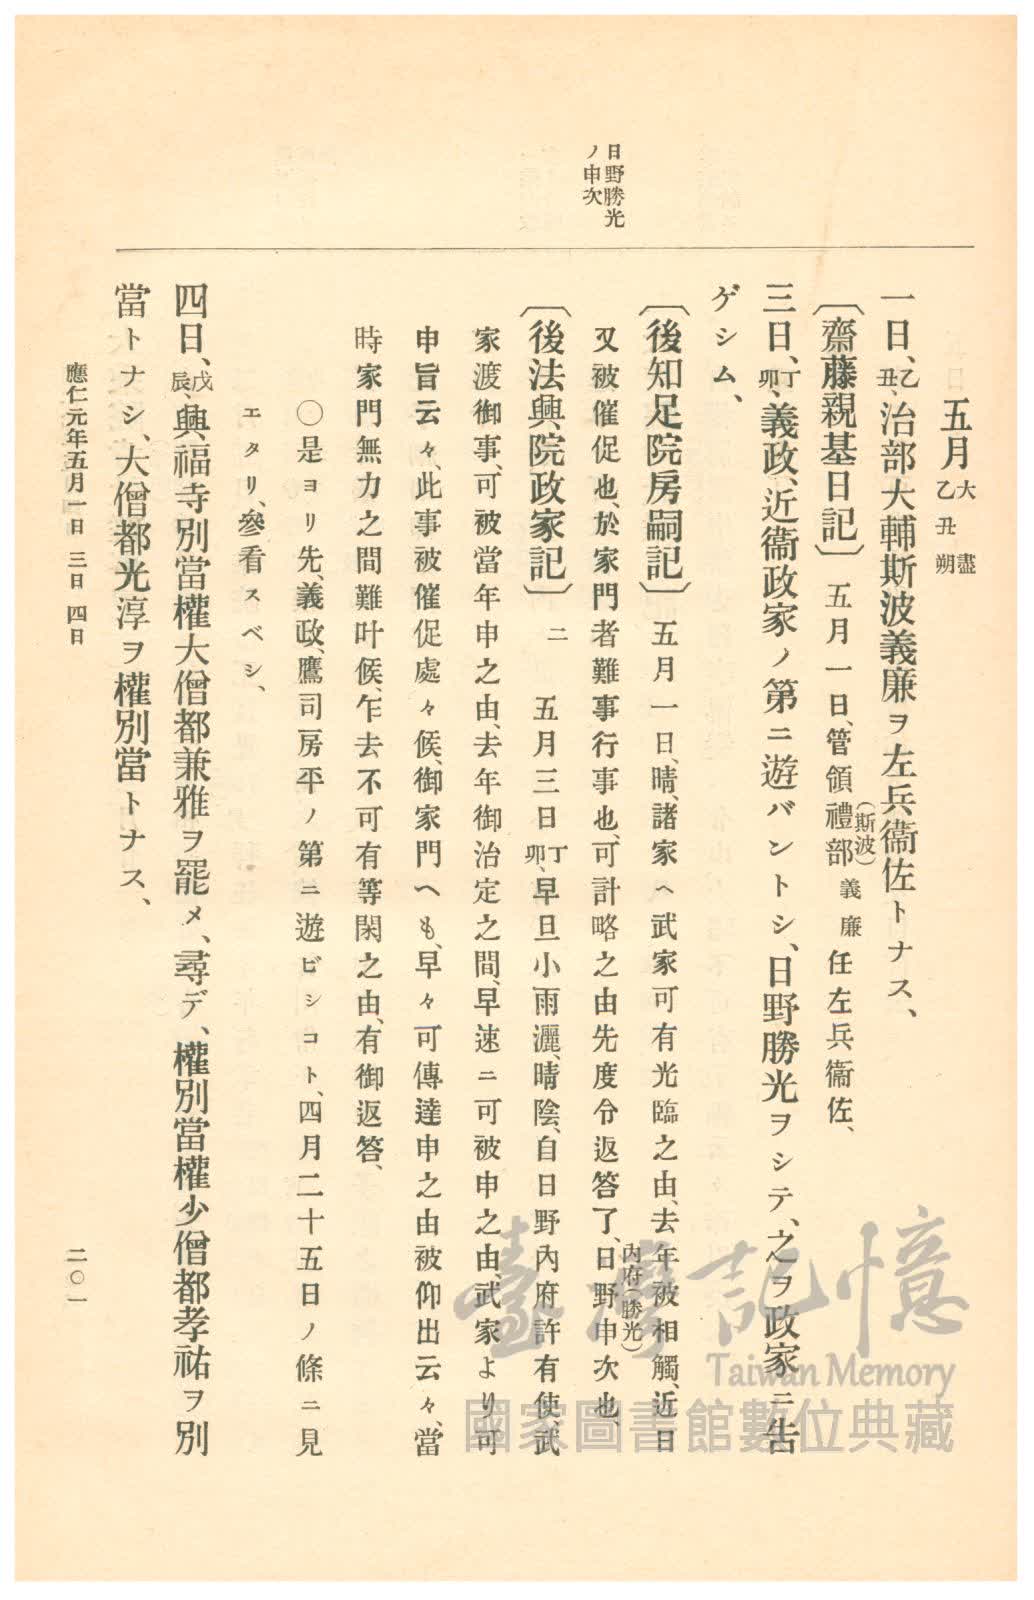 日野勝光
ノ申次
五月大盡
乙丑朔
一日、乙丑、治部大輔斯波義廉ヲ左兵衞佐トナス、
〔齋藤親基日記〕 五月一日、管領禮部(斯波)義廉任左兵衞佐、
三日、丁卯、義政、近衞政家ノ第ニ遊バントシ、日野勝光ヲシテ、之ヲ政家ニ告
ゲシム、
〔後知足院房嗣記〕 五月一日、晴、諸家ヘ武家可有光臨之由、去年被相觸、近日
又被催促也、於家門者難事行事也、可計略之由先度令返答了、日野內府(勝光)申次也、
〔後法興院政家記〕 二 五月三日丁卯、早旦小雨灑、晴陰、自日野內府許有使、武
家渡御事、可被當年申之由、去年御治定之間、早速ニ可被申之由、武家より可
申旨云々、此事被催促處々候、御家門へも、早々可傳達申之由被仰出云々、當
時家門無力之間難叶候、乍去不可有等閑之由、有御返答、
〇是ヨリ先、義政、鷹司房平ノ第ニ遊ビシコト、四月二十五日ノ條ニ見
エタリ、參看スベシ、
四日、戊辰、興福寺別當權大僧都兼雅ヲ罷メ、尋デ、權別當權少僧都孝祐ヲ別
當トナシ、大僧都光淳ヲ權別當トナス、
應仁元年五月一日 三日 四日
二〇一
臺灣記憶
Taiwan Memory
國家圖書館數位典藏